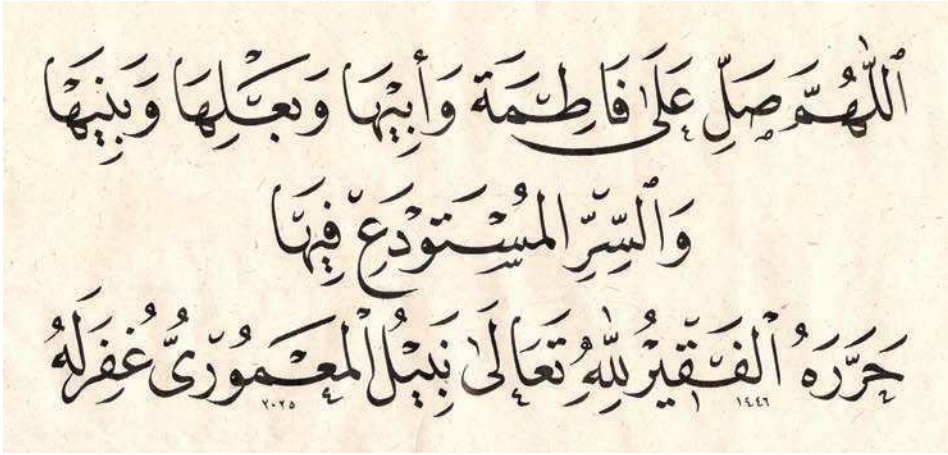 ٱللّٰهُمَّ صَلِّ عَلَىٰ فَاطِمَةَ وَأَبِيْهَا وَبَعْلِهَا وَبَنِيْهَا
وَٱلسِّرِّ المُسْتَوْدَعِ فِيْهَا
حَرَّرَهُ ٱلْفَقِيْرُ لِلّٰهِ تَعَالَىٰ نَبِيْلُ ٱلْمَعْمُوْرِيُّ غُفِرَ لَهُ
١٤٤٦ ٢٠٢٥